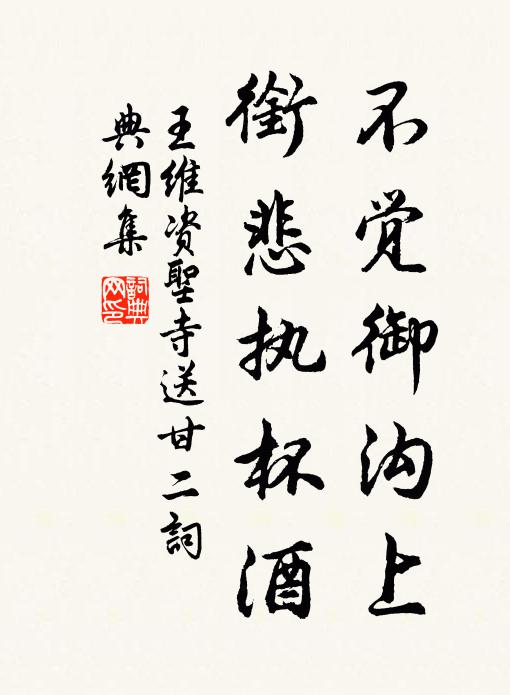 不觉御沟上
銜悲执杯酒
王維资聖寺送甘二詞
典網集
詞典网印